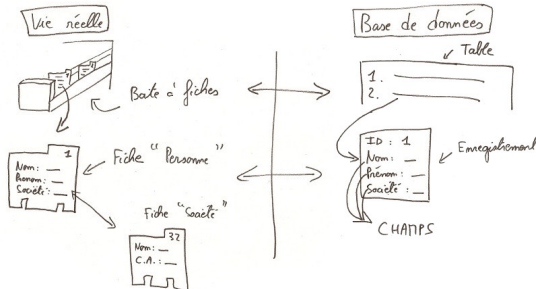 Vie réelle
Boîte à fiches
1
Nom : __
Prénom : __
Société : __
Fiche "Personne"
Fiche "Société"
32
Nom : __
C.A. : __
Base de données
Table
1.
2.
ID : 1
Nom : __
Prénom : __
Société : __
Enregistrement
CHAMPS